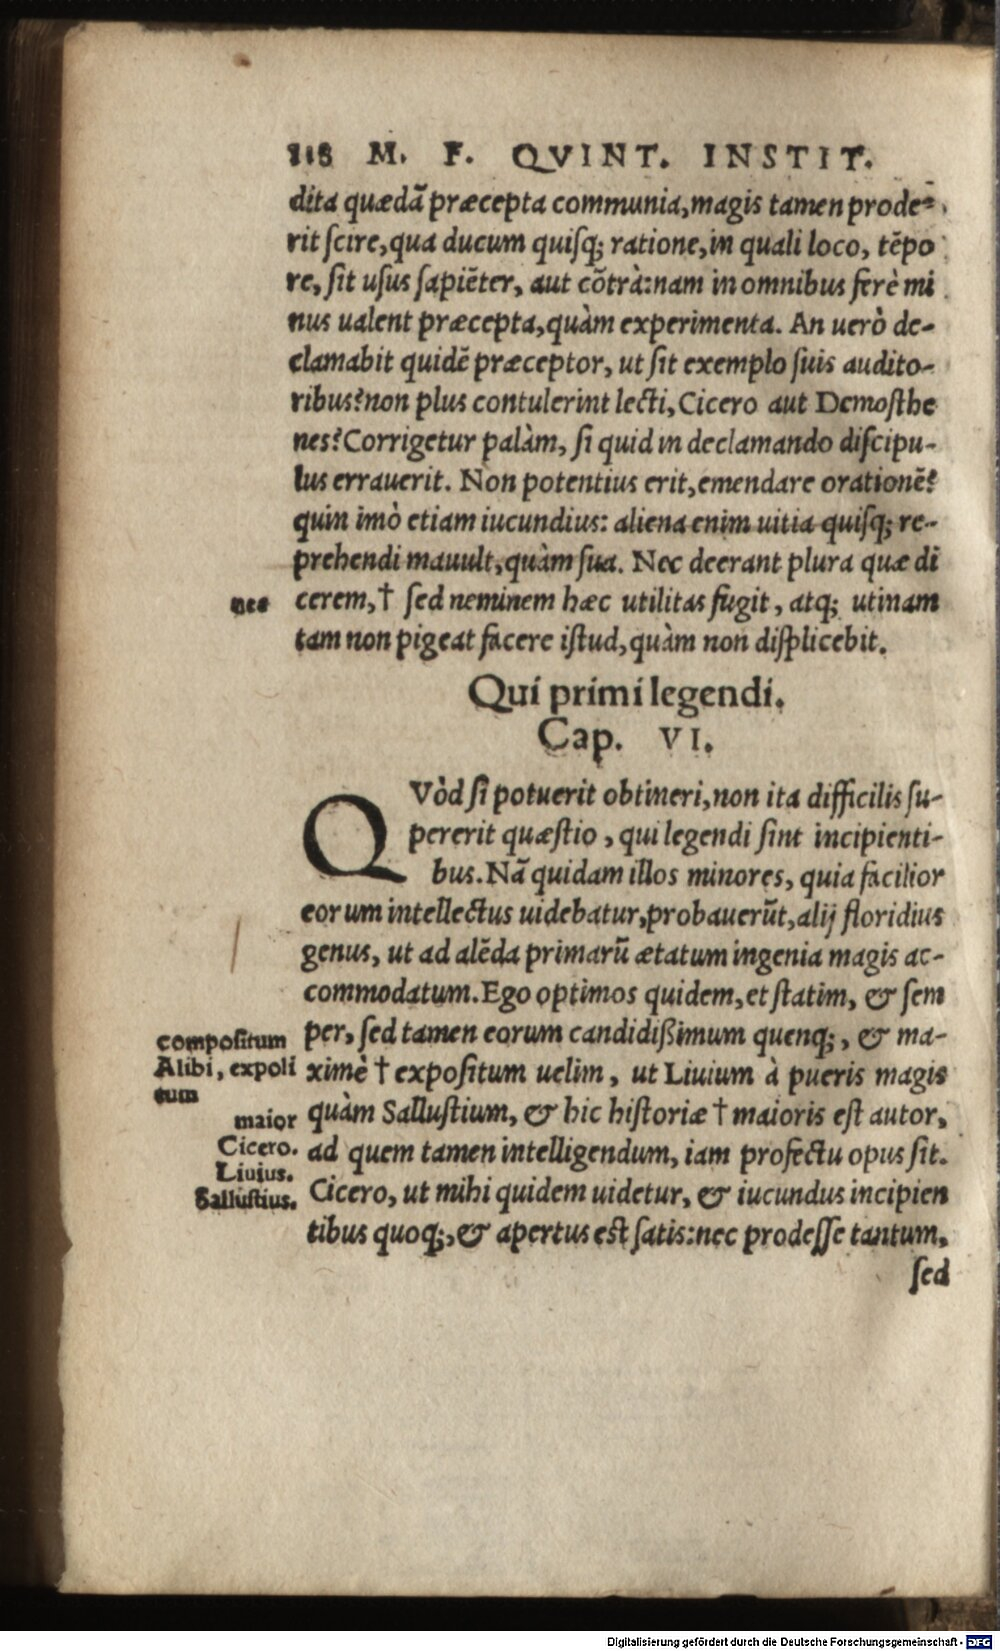 118 M. F. QVINT. INSTIT.
dita quædã præcepta communia, magis tamen prode-
rit scire, qua ducum quisq; ratione, in quali loco, tẽpo
re, sit usus sapiẽter, aut cõtrà: nam in omnibus ferè mi
nus ualent præcepta, quàm experimenta. An uerò de-
clamabit quidẽ præceptor, ut sit exemplo suis audito-
ribus? non plus contulerint lecti, Cicero aut Demosthe
nes? Corrigetur palàm, si quid in declamando discipu-
lus errauerit. Non potentius erit, emendare orationẽ?
quin imò etiam iucundius: aliena enim uitia quisq; re-
prehendi mauult, quàm sua. Nec deerant plura quæ di
nec
cerem, † sed neminem hæc utilitas fugit, atq; utinam
tam non pigeat facere istud, quàm non displicebit.
Qui primi legendi.
Cap. VI.
QVòd si potuerit obtineri, non ita difficilis su-
pererit quæstio, qui legendi sint incipienti-
bus. Nã quidam illos minores, quia facilior
eorum intellectus uidebatur, probauerũt, alij floridius
genus, ut ad alẽda primarũ ætatum ingenia magis ac-
commodatum. Ego optimos quidem, et statim, & sem
per, sed tamen eorum candidißimum quenq;, & ma-
compositum
Alibi, expoli
tum
ximè † expositum uelim, ut Liuium à pueris magis
quàm Sallustium, & hic historiæ † maioris est autor,
maior
ad quem tamen intelligendum, iam profectu opus sit.
Cicero.
Liuius.
Sallustius.
Cicero, ut mihi quidem uidetur, & iucundus incipien
tibus quoq;, & apertus est satis: nec prodesse tantum,
sed
Digitalisierung gefördert durch die Deutsche Forschungsgemeinschaft - DFG